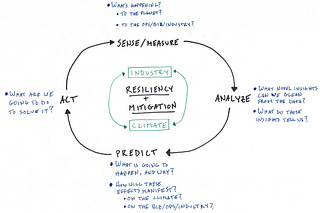 • WHAT'S HAPPENING?
• TO THE PLANET?
• TO THE OPS/BIZ/INDUSTRY?
SENSE/MEASURE
INDUSTRY
RESILIENCY
+
MITIGATION
CLIMATE
ANALYZE
• WHAT NOVEL INSIGHTS
CAN WE GLEAN
FROM THE DATA?
• WHAT DO THOSE
INSIGHTS TELL US?
PREDICT
• WHAT IS GOING TO
HAPPEN, AND WHY?
• HOW WILL THESE
EFFECTS MANIFEST?
• ON THE CLIMATE?
• ON THE BIZ/OPS/INDUSTRY?
ACT
• WHAT ARE WE
GOING TO DO
TO SOLVE IT?